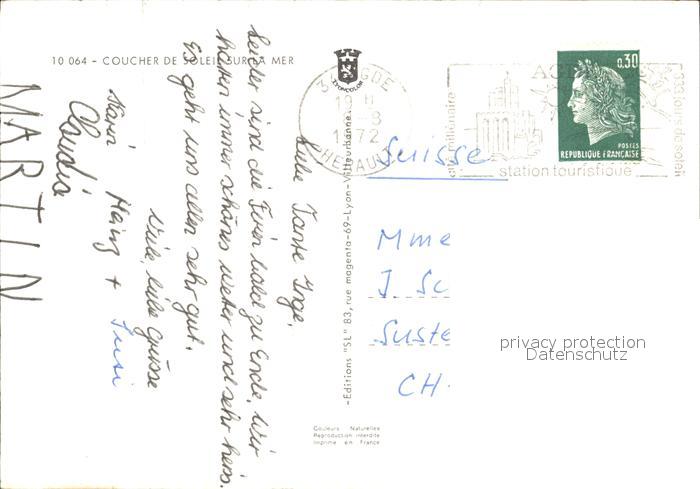 10 064 - COUCHER DE SOLEIL SUR LA MER
Liebe Tante Inge,
Leider sind die Ferien bald zu Ende. Wir
hatten immer schönes Wetter und sehr heiss.
Es geht uns allen sehr gut.
Viele, liebe Grüsse
Heinz + Susi
Karin
Claudia
MARTIN
-Editions "SL" 83, rue magenta-69-Lyon-Villeurbanne-
Couleurs Naturelles
Reproduction interdite
Imprimé en France
34 AGDE
19 H
1972
HERAULT
AGDE
station touristique
313 jours de soleil
0,30
POSTES
REPUBLIQUE FRANÇAISE
Suisse
Mme
J. Sc
Suste
CH.
privacy protection
Datenschutz